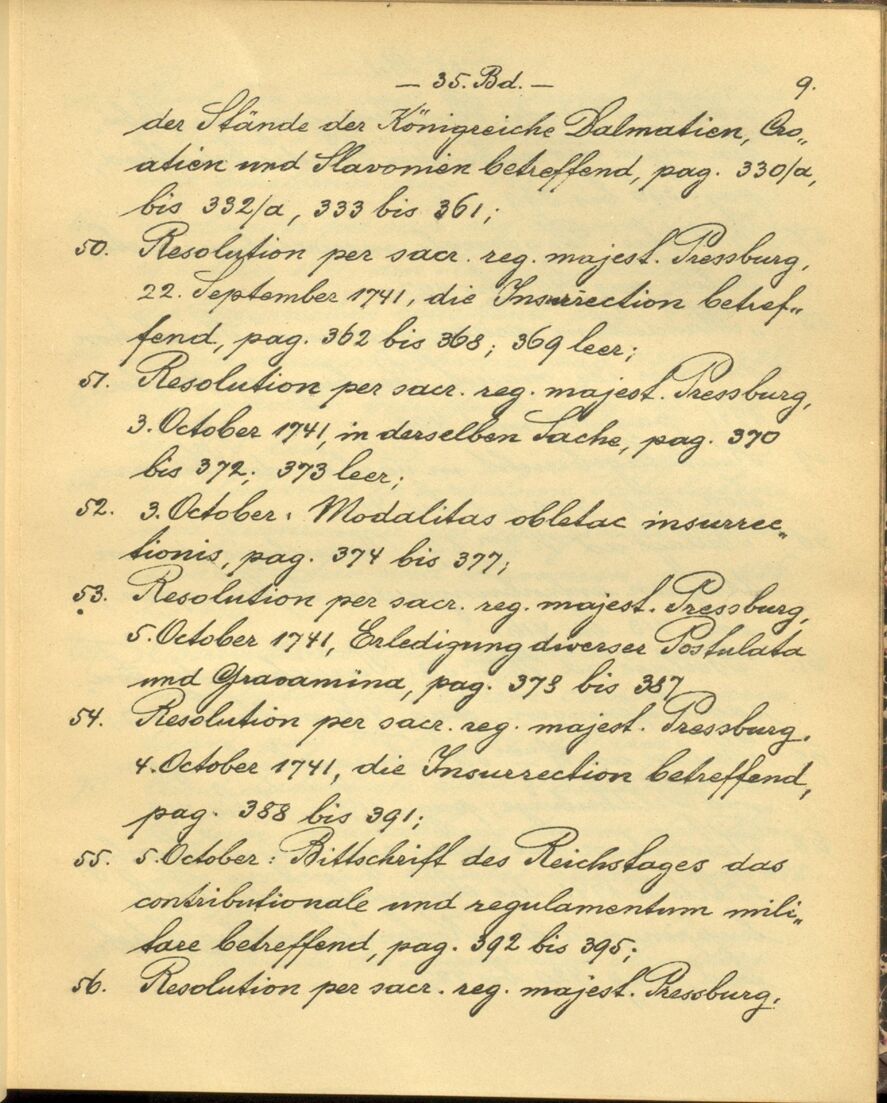 — 35. Bd. — 9.
der Stände der Königreiche Dalmatien, Cro„
atien und Slavonien betreffend, pag. 330/a,
bis 332/a, 333 bis 361;
50. Resolution per sacr. reg. majest. Pressburg,
22. September 1741, die Insurrection betref„
fend, pag. 362 bis 368; 369 leer;
51. Resolution per sacr. reg. majest. Pressburg,
3. October 1741, in derselben Sache, pag. 370
bis 372; 373 leer;
52. 3. October: Modalitas obletac insurrec„
tionis, pag. 374 bis 377;
53. Resolution per sacr. reg. majest. Pressburg,
5. October 1741, Erledigung diverser Postulata
und Gravamina, pag. 378 bis 387
54. Resolution per sacr. reg. majest. Pressburg,
4. October 1741, die Insurrection betreffend,
pag. 388 bis 391;
55. 5. October: Bittschrift des Reichstages das
contributionale und regulamentum mili„
tare betreffend, pag. 392 bis 395;
56. Resolution per sacr. reg. majest. Pressburg,